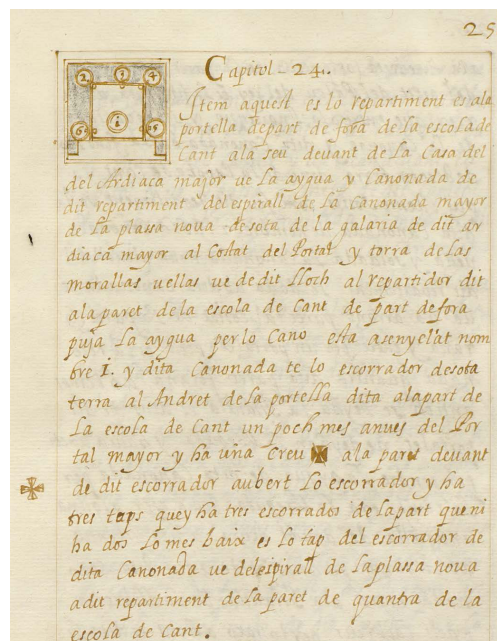 25
Capitol - 24.
2 3 4
1
6 5
Item aquest es lo repartiment es ala
portella depart de fora de la escola de
Cant ala seu devant de La Casa del
del Ardiaca major ve La aygua y Canonada de
dit repartiment del espirall de la Canonada mayor
de La plassa nova de sota de la galaria de dit ar
diaca mayor al Costat del Portal y torra de las
morallas vellas ve de dit Lloch al repartidor dit
ala paret de la escola de Cant de part de fora
puja La aygua per lo Cano esta asenyelat nom
bre 1. y dita Canonada te lo escorrador de sota
terra al Andret de la portella dita ala part de
La escola de Cant un poch mes anves del Por
tal mayor y ha uña Creu ✠ ala paret devant
de dit escorrador aubert Lo escorrador y ha
tres taps que y ha tres escorrados de la part que ni
ha dos Lo mes baix es lo tap del escorrador de
dita Canonada ve del espirall de La plassa nova
a dit repartiment de La paret de quantra de la
escola de Cant.